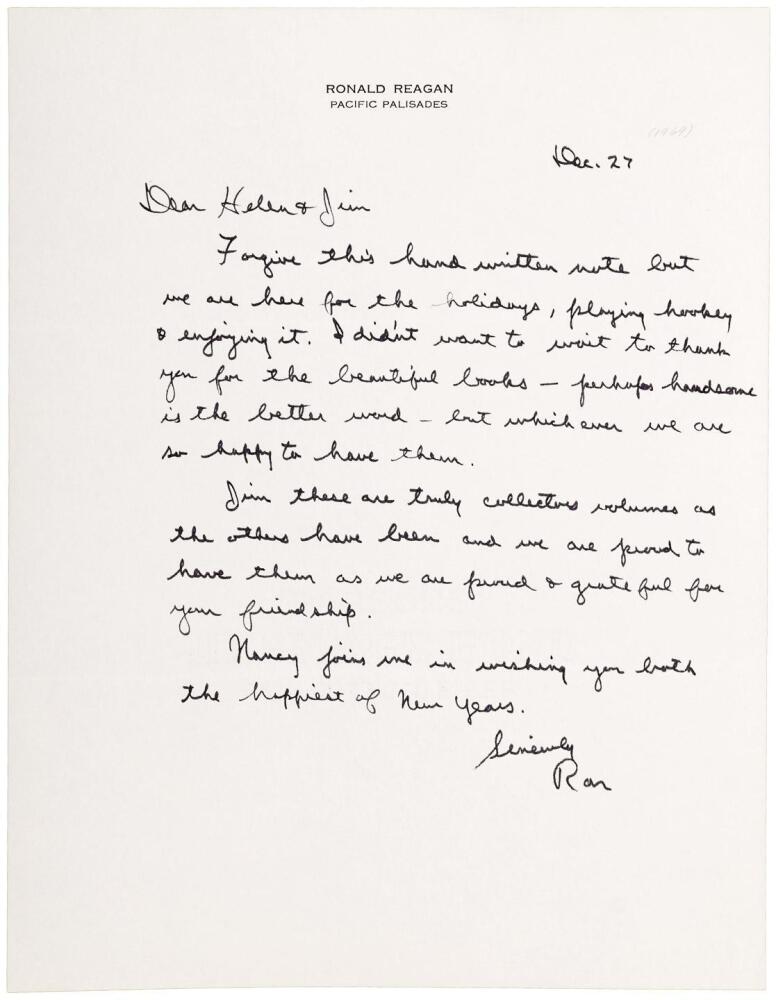 RONALD REAGAN
PACIFIC PALISADES
(1969)
Dec. 27
Dear Helen & Jim
Forgive this hand written note but
we are here for the holidays, playing hookey
& enjoying it. I didn't want to wait to thank
you for the beautiful books – perhaps handsome
is the better word – but which ever we are
so happy to have them.
Jim these are truly collectors volumes as
the others have been and we are proud to
have them as we are proud & grateful for
your friendship.
Nancy joins me in wishing you both
the happiest of New Years.
Sincerely
Ron